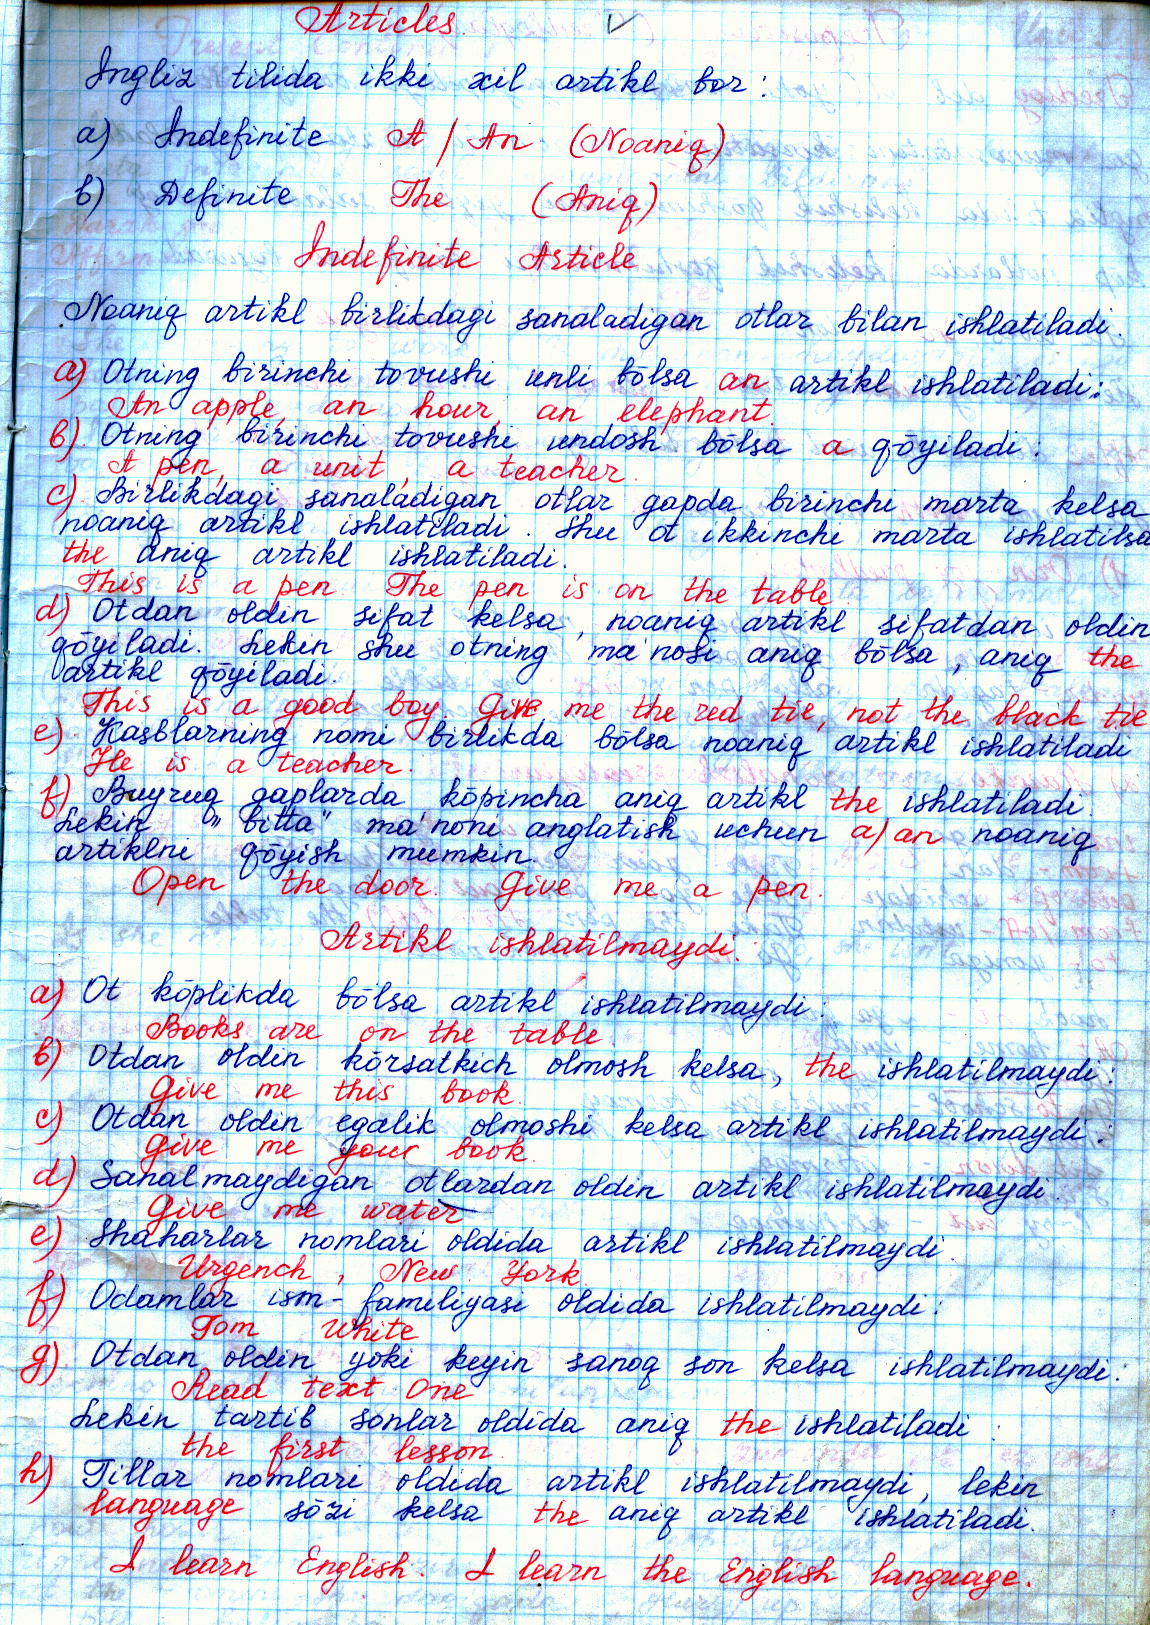 Articles
Ingliz tilida ikki xil artikl bor:
a) Indefinite A / An (Noaniq)
b) Definite The (Aniq)
Indefinite Article
Noaniq artikl birlikdagi sanaladigan otlar bilan ishlatiladi.
a) Otning birinchi tovushi unli bōlsa an artikl ishlatiladi:
An apple, an hour, an elephant.
b) Otning birinchi tovushi undosh bōlsa a qōyiladi:
A pen, a unit, a teacher.
c) Birlikdagi sanaladigan otlar gapda birinchi marta kelsa
noaniq artikl ishlatiladi. Shu ot ikkinchi marta ishlatilsa
the aniq artikl ishlatiladi.
This is a pen. The pen is on the table
d) Otdan oldin sifat kelsa, noaniq artikl sifatdan oldin
qōyiladi. Lekin shu otning ma'nosi aniq bōlsa, aniq the
artikl qōyiladi.
This is a good boy. Give me the red tie, not the black tie
e) Kasblarning nomi birlikda bōlsa noaniq artikl ishlatiladi
He is a teacher.
f) Buyruq gaplarda kōpincha aniq artikl the ishlatiladi.
Lekin "bitta" ma'noni anglatish uchun a/an noaniq
artiklni qōyish mumkin.
Open the door. Give me a pen.
Artikl ishlatilmaydi.
a) Ot kōplikda bōlsa artikl ishlatilmaydi:
Books are on the table.
b) Otdan oldin kōrsatkich olmosh kelsa, the ishlatilmaydi:
Give me this book.
c) Otdan oldin egalik olmoshi kelsa artikl ishlatilmaydi:
Give me your book.
d) Sanalmaydigan otlardan oldin artikl ishlatilmaydi.
Give me water
e) Shaharlar nomlari oldida artikl ishlatilmaydi.
Urgench, New York.
f) Odamlar ism-familiyasi oldida ishlatilmaydi:
Tom White
g) Otdan oldin yoki keyin sanoq son kelsa ishlatilmaydi:
Read text One
Lekin tartib sonlar oldida aniq the ishlatiladi:
the first lesson.
h) Tillar nomlari oldida artikl ishlatilmaydi, lekin
language sōzi kelsa the aniq artikl ishlatiladi.
I learn English. I learn the English language.